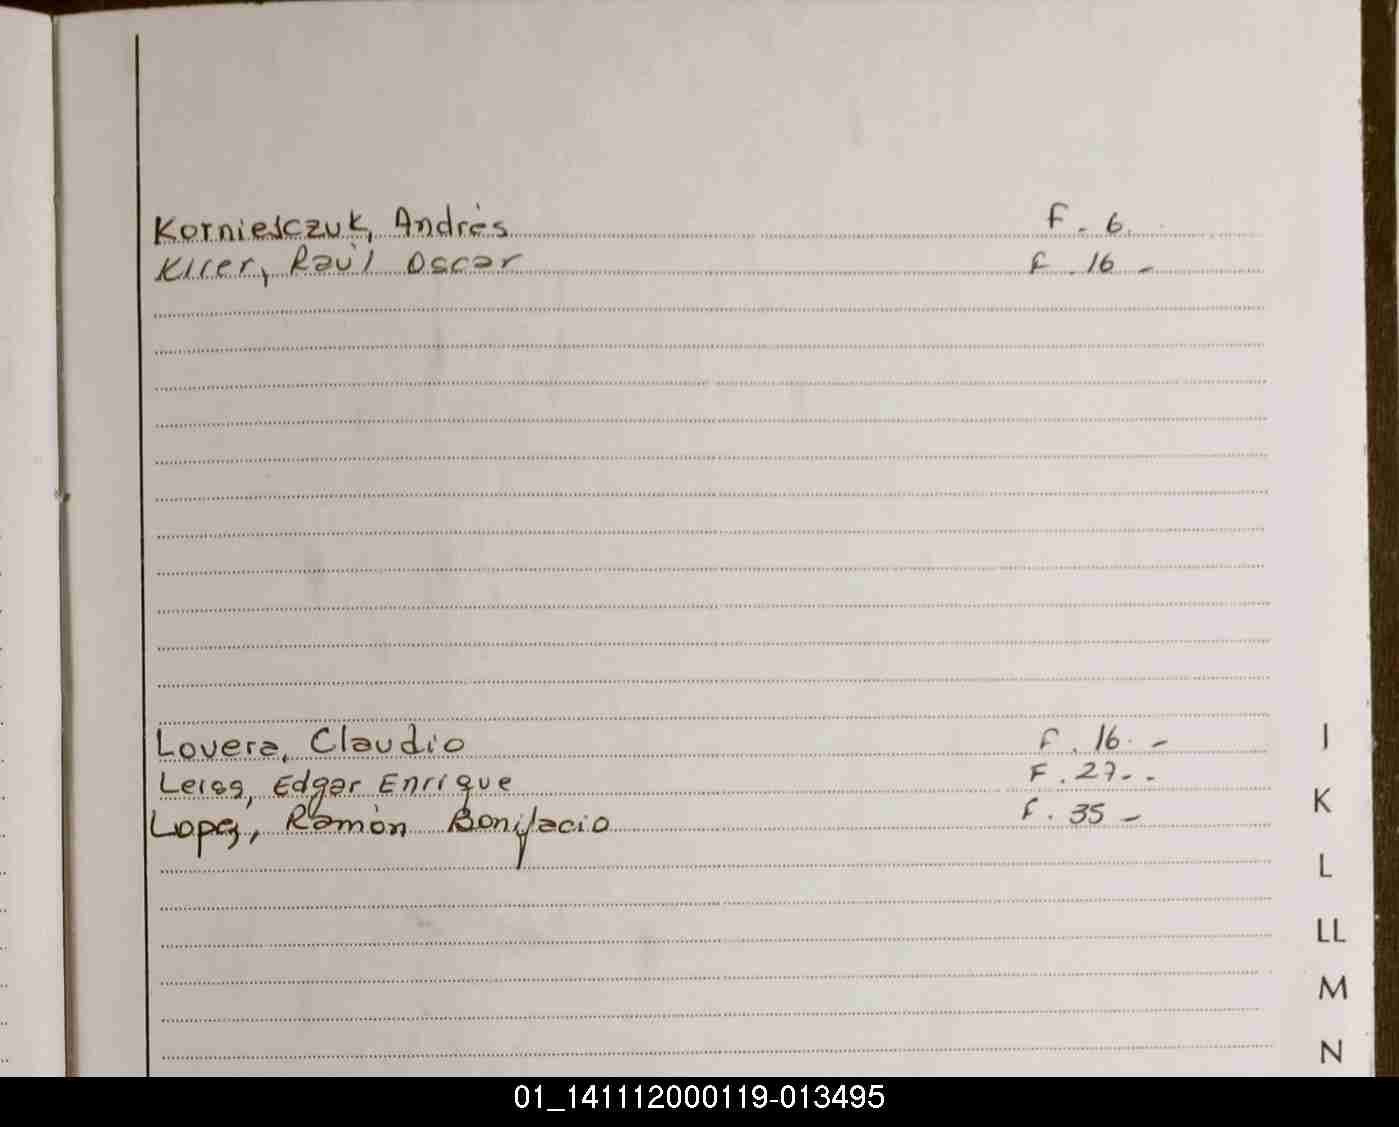 Korniejczuk, Andrés F. 6.
Raúl Oscar F. 16 -
Lovera, Claudio F. 16. -
Leiss, Edgar Enrique F. 27. -
Lopez, Ramón Bonifacio F. 35 -
I
K
L
LL
M
N
01_141112000119-013495